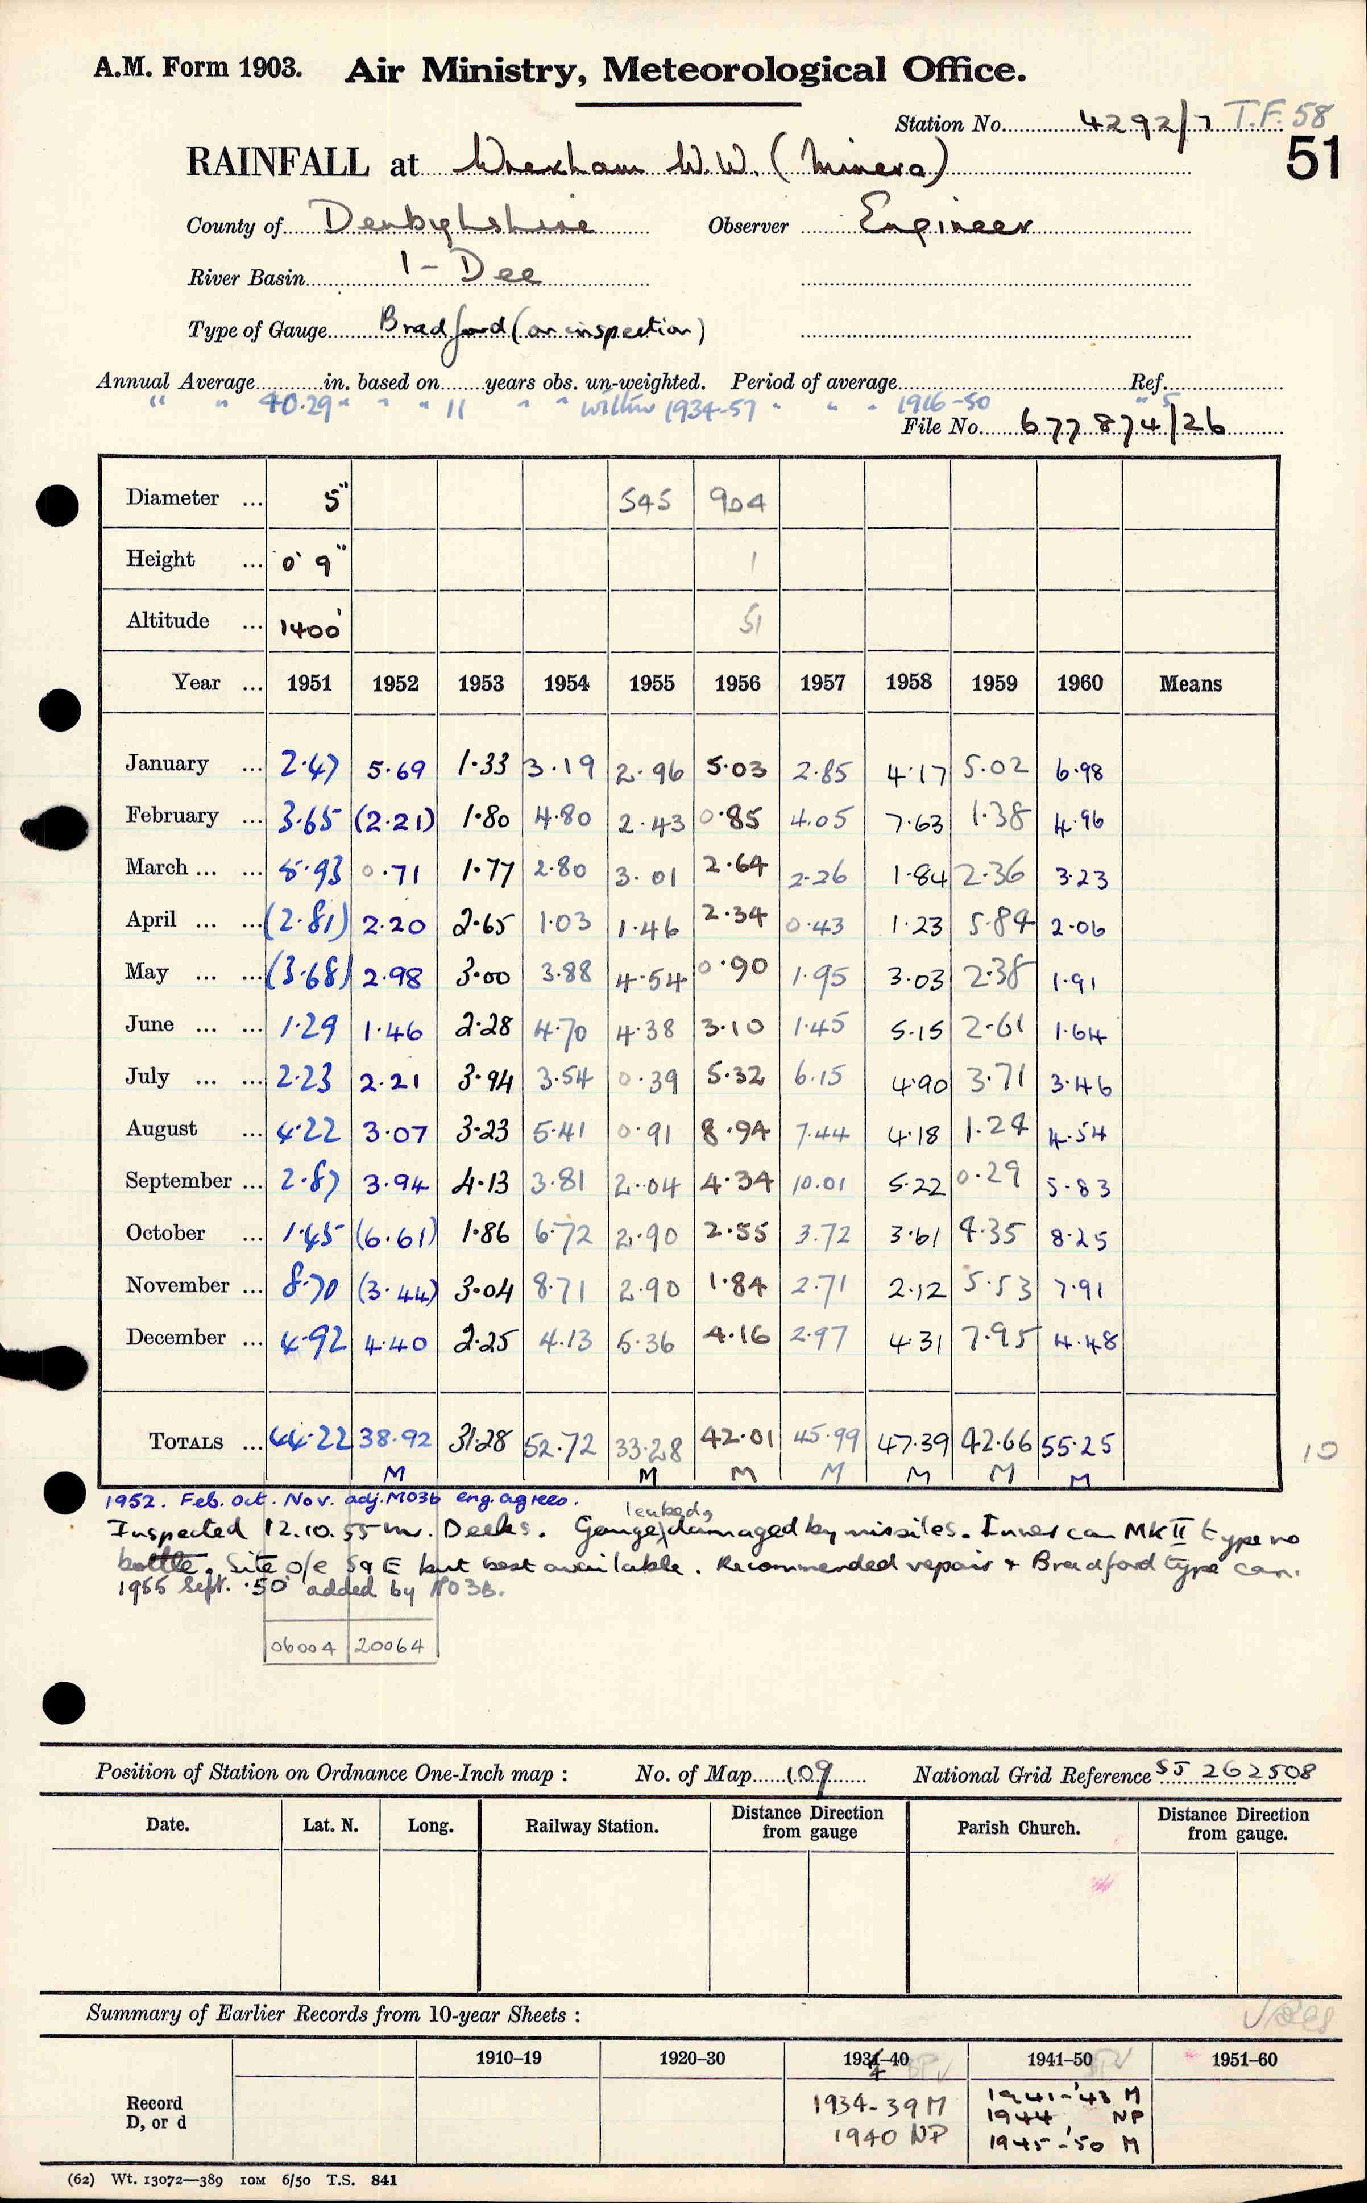 A.M. Form 1903. Air Ministry, Meteorological Office.
Station No. 4292/7 T.F. 58
51
RAINFALL at Wrexham W.W. (Minera)
County of Denbighshire Observer Engineer
River Basin 1 - Dee
Type of Gauge Bradford (on inspection)
Annual Average in. based on years obs. un-weighted. Period of average Ref.
" " 40.29 " " " 11 " " within 1934-57 " " " 1916-50 " 5
File No. 677874/26
Diameter ... 5" 545 904
Height ... 0' 9" 1
Altitude ... 1400' 51
Year ... 1951 1952 1953 1954 1955 1956 1957 1958 1959 1960 Means
January ... 2.47 5.69 1.33 3.19 2.96 5.03 2.85 4.17 5.02 6.98
February ... 3.65 (2.21) 1.80 4.80 2.43 0.85 4.05 7.63 1.38 4.96
March ... ... 5.93 0.71 1.77 2.80 3.01 2.64 2.26 1.84 2.36 3.23
April ... ... (2.81) 2.20 2.65 1.03 1.46 2.34 0.43 1.23 5.84 2.06
May ... ... (3.68) 2.98 3.00 3.88 4.54 0.90 1.95 3.03 2.38 1.91
June ... ... 1.29 1.46 2.28 4.70 4.38 3.10 1.45 5.15 2.61 1.64
July ... ... 2.23 2.21 3.94 3.54 0.39 5.32 6.15 4.90 3.71 3.46
August ... 4.22 3.07 3.23 5.41 0.91 8.94 7.44 4.18 1.24 4.54
September ... 2.87 3.94 4.13 3.81 2.04 4.34 10.01 5.22 0.29 5.83
October ... 1.45 (6.61) 1.86 6.72 2.90 2.55 3.72 3.61 4.35 8.25
November ... 8.70 (3.44) 3.04 8.71 2.90 1.84 2.71 2.12 5.53 7.91
December ... 4.92 4.40 2.25 4.13 5.36 4.16 2.97 4.31 7.95 4.48
TOTALS ... 44.22 38.92 31.28 52.72 33.28 42.01 45.99 47.39 42.66 55.25 10
M M M M M M M
1952. Feb. Oct. Nov. adj. MO3b eng. agrees.
leaked,
Inspected 12.10.55 Mr. Deeks. Gauge damaged by missiles. Inner can MK II type no
bottle. Site o/e Sq E but best available. Recommended repair + Bradford type can.
1955 Sept. .50 added by MO3B.
06004 20064
Position of Station on Ordnance One-Inch map : No. of Map 109 National Grid Reference SJ 262508
Date. Lat. N. Long. Railway Station. Distance Direction from gauge Parish Church. Distance Direction from gauge.
Summary of Earlier Records from 10-year Sheets :
1910–19 1920–30 1931–40 1941–50 1951–60
4
Record
D, or d
1934-39 M
1940 NP
1941-'43 M
1944 NP
1945-'50 M
(62) Wt. 13072—389 10M 6/50 T.S. 841